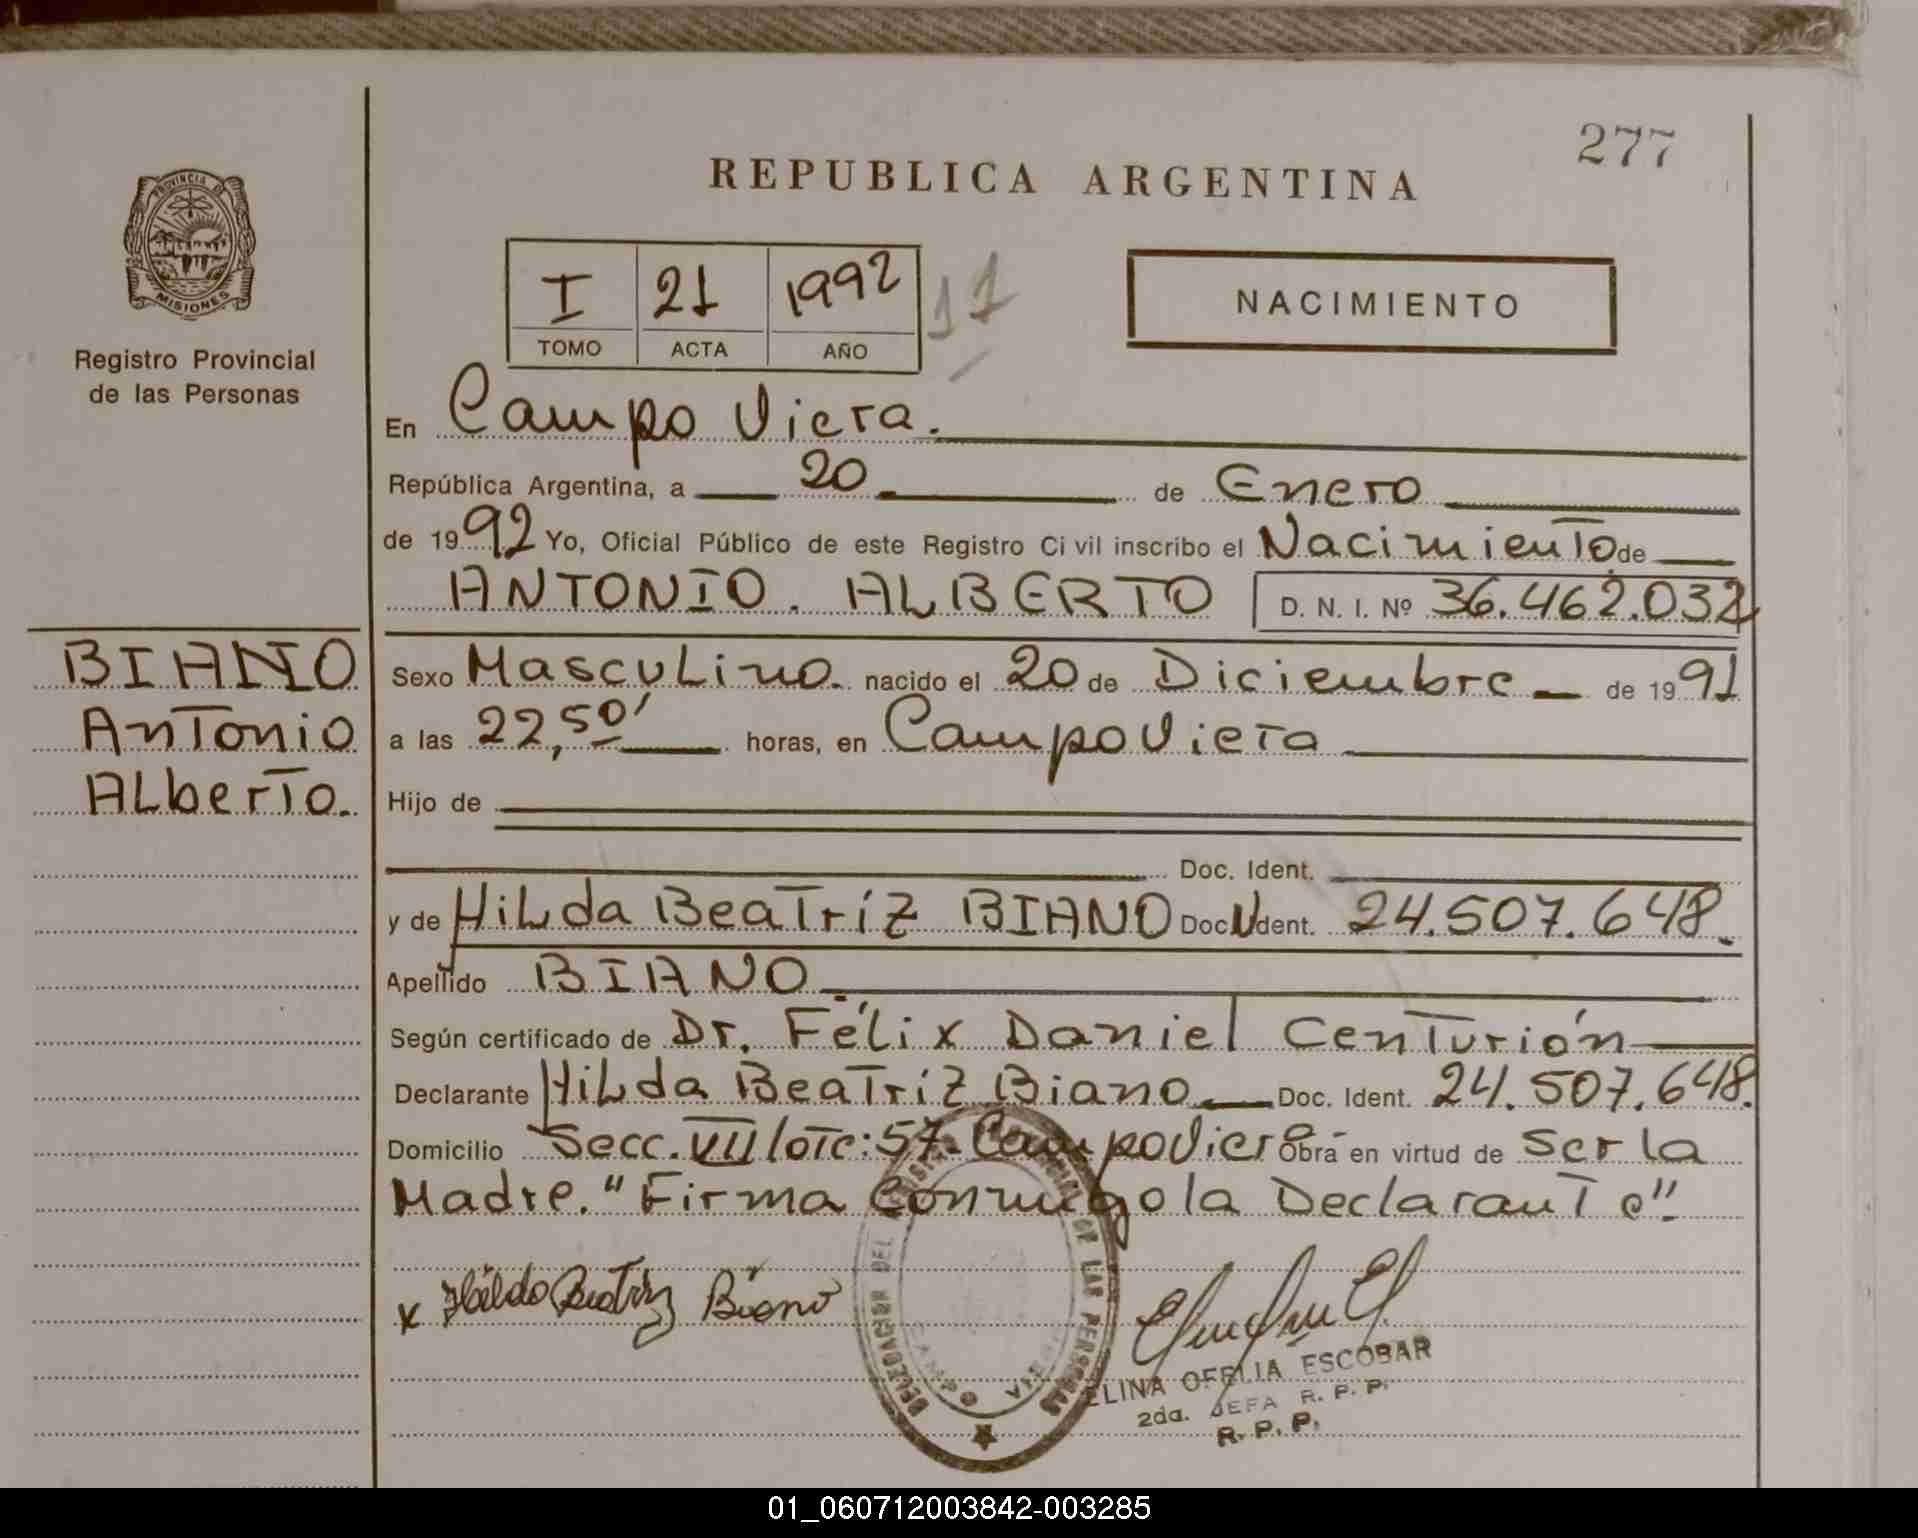 277
REPUBLICA ARGENTINA
PROVINCIA DE
MISIONES
Registro Provincial
de las Personas
I 21 1992 11
TOMO ACTA AÑO
NACIMIENTO
En Campo Viera.
República Argentina, a 20 de Enero
de 1992 Yo, Oficial Público de este Registro Civil inscribo el Nacimiento de
ANTONIO. ALBERTO D. N. I. Nº 36.462.032
BIANO
Antonio
Alberto.
Sexo Masculino. nacido el 20 de Diciembre de 1991
a las 22,50' horas, en Campo Viera
Hijo de
Doc. Ident.
y de Hilda Beatríz BIANO Doc. Ident. 24.507.648.
Apellido BIANO
Según certificado de Dr. Félix Daniel Centurión
Declarante Hilda Beatríz Biano Doc. Ident. 24.507.648.
Domicilio Secc. VII lote: 57- Campo Viera- Obra en virtud de ser la
Madre. "Firma Conmigo la Declarante"
x Hilda Beatriz Biano
DELEGACION DEL REGISTRO PROVINCIAL DE LAS PERSONAS
CAMPO VIERA
ELINA OFELIA ESCOBAR
2da. JEFA R. P. P.
R. P. P.
01_060712003842-003285